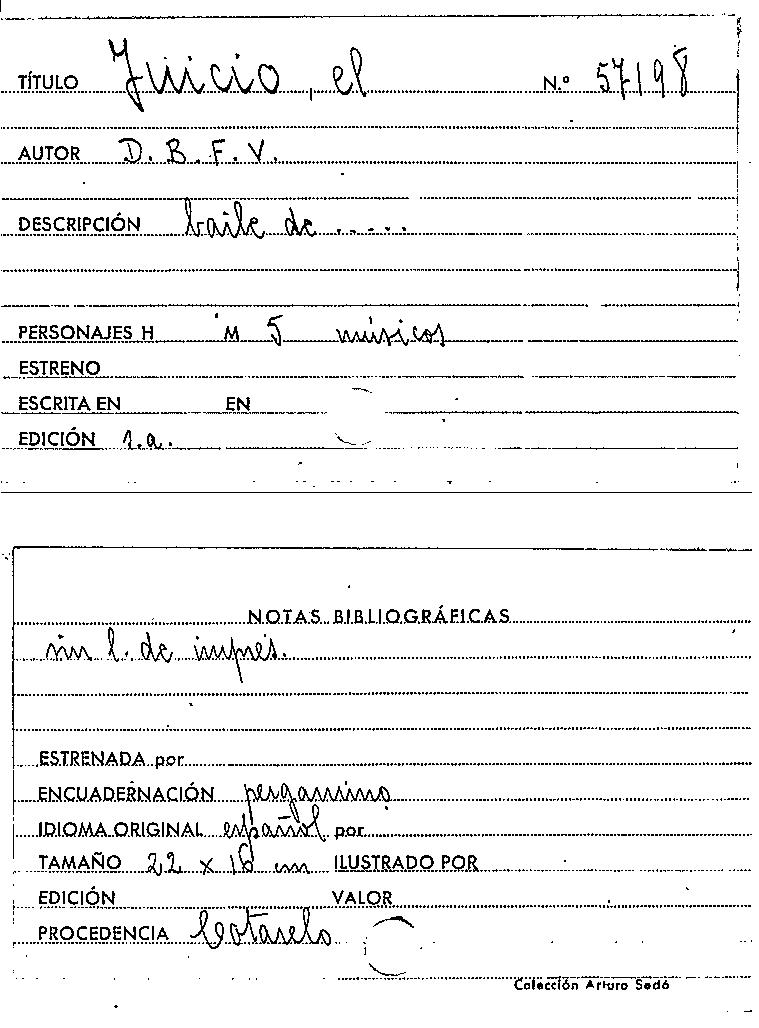 TÍTULO Juicio, el N.º 57198
AUTOR D. B. F. V.
DESCRIPCIÓN baile de .....
PERSONAJES H M 5 músicos
ESTRENO
ESCRITA EN EN
EDICIÓN s.a.
NOTAS BIBLIOGRÁFICAS
sin l. de impres.
ESTRENADA por
ENCUADERNACIÓN pergamino
IDIOMA ORIGINAL español por
TAMAÑO 22 x 16 cm ILUSTRADO POR
EDICIÓN VALOR
PROCEDENCIA Cotarelo
Colección Arturo Sedó